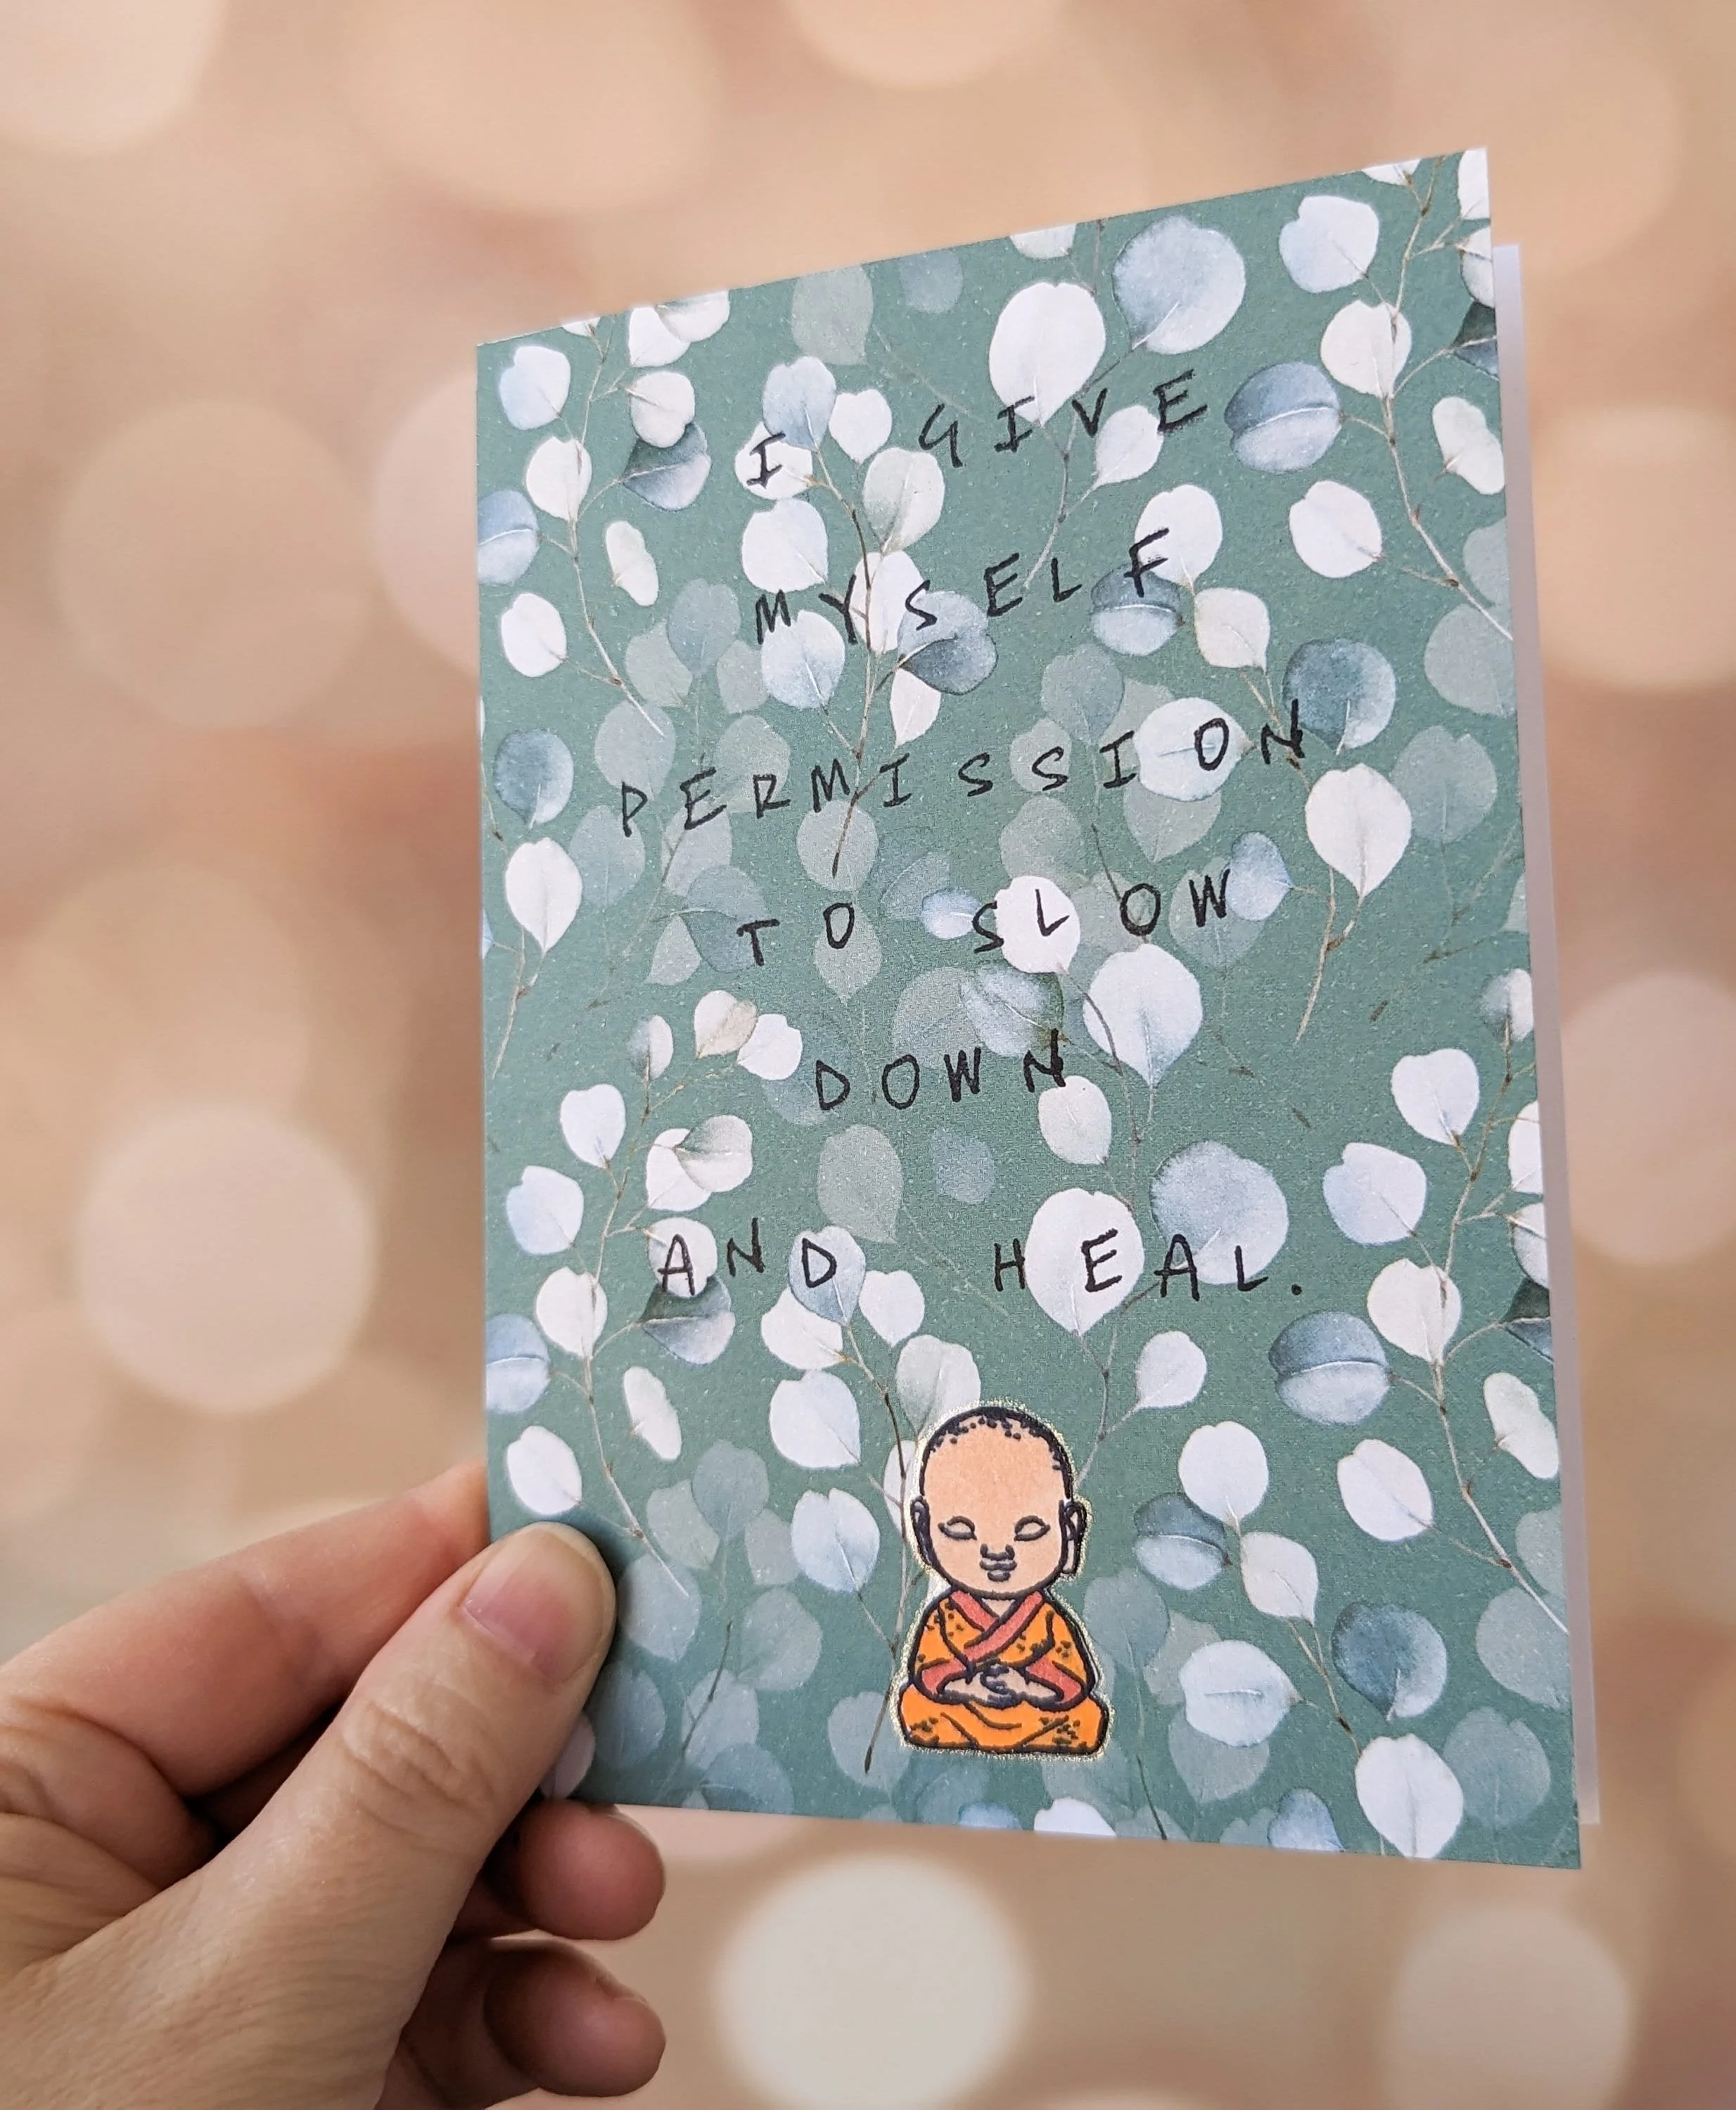 I GIVE
MYSELF
PERMISSION
TO SLOW
DOWN
AND HEAL.